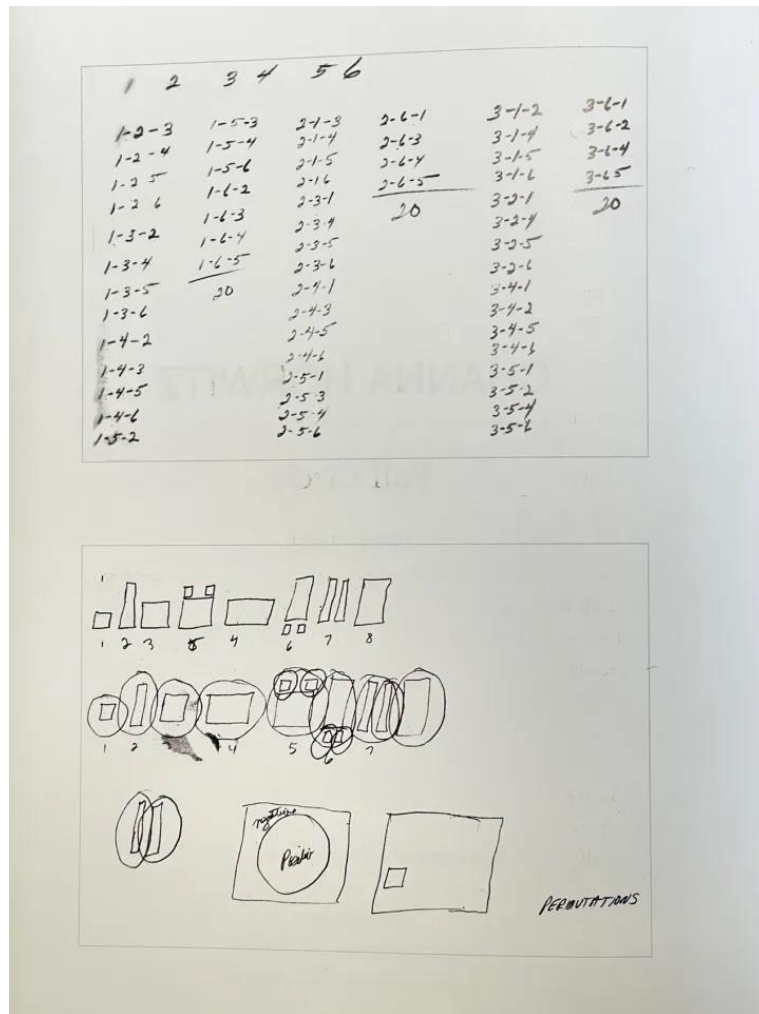 1 2 3 4 5 6
1-2-3
1-2-4
1-2 5
1-2 6
1-3-2
1-3-4
1-3-5
1-3-6
1-4-2
1-4-3
1-4-5
1-4-6
1-5-2
1-5-3
1-5-4
1-5-6
1-6-2
1-6-3
1-6-4
1-6-5
20
2-1-3
2-1-4
2-1-5
2-16
2-3-1
2-3-4
2-3-5
2-3-6
2-4-1
2-4-3
2-4-5
2-4-6
2-5-1
2-5-3
2-5-4
2-5-6
2-6-1
2-6-3
2-6-4
2-6-5
20
3-1-2
3-1-4
3-1-5
3-1-6
3-2-1
3-2-4
3-2-5
3-2-6
3-4-1
3-4-2
3-4-5
3-4-6
3-5-1
3-5-2
3-5-4
3-5-6
3-6-1
3-6-2
3-6-4
3-65
20
1
1 2 3 5 4 6 7 8
1 2 3 4 5 6 7
PERMUTATIONS